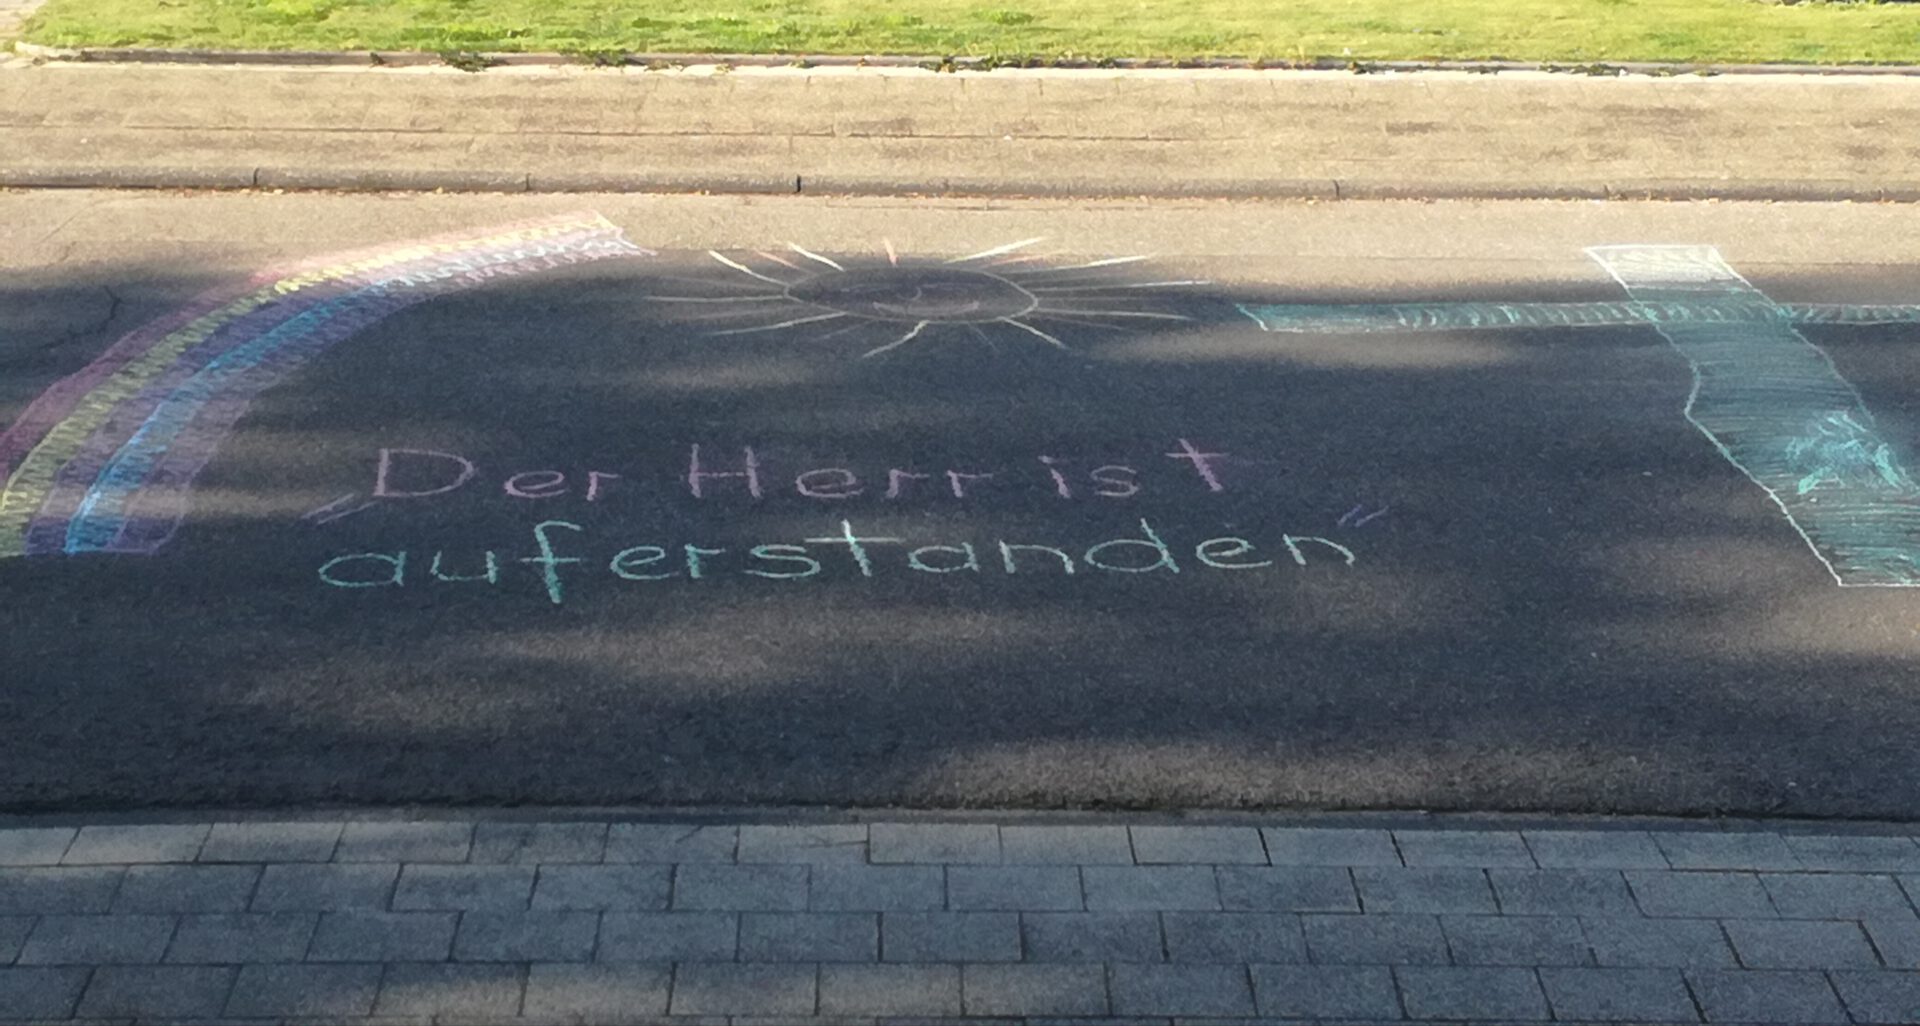 „Der Herr ist
auferstanden"